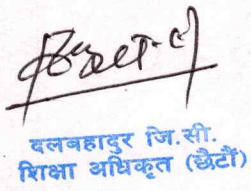 दलबहादुर जि.सी.
शिक्षा अधिकृत (छैटौं)